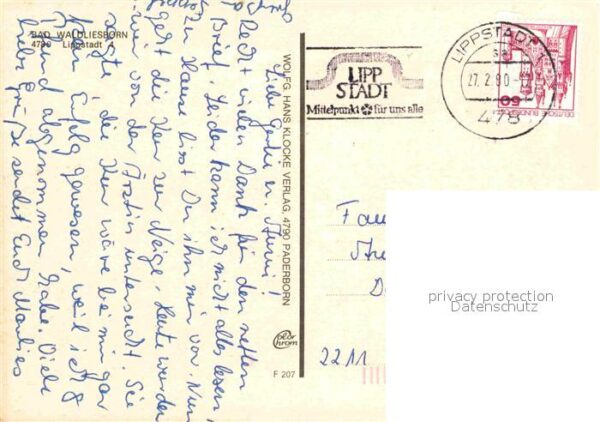 BAD WALDLIESBORN
4780 Lippstadt 4
Liebe Gerti u. 
Recht vielen Dank für den netten
Brief. Leider kann ich nicht alles lesen
zu Hause liest Du ihn mir vor. Nun
geht die Kur zur Neige. Heute wurden
wir von der Ärztin untersucht. Sie
sagte, die Kur wäre bei mir gar
kein Erfolg gewesen, weil ich 9
Pfund abgenommen habe. Viele
liebe Grüße sendet Euch Marlies
WOLFG. HANS KLOCKE VERLAG, 4790 PADERBORN
color
chrom
F 207
LIPP
STADT
Mittelpunkt für uns alle
LIPPSTADT
27.2.80
478
60
DEUTSCHE BUNDESPOST
Fam
2211
privacy protection
Datenschutz